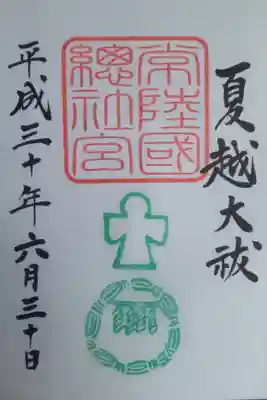 夏越大祓
常陸國
總社宮
平成三十年六月三十日